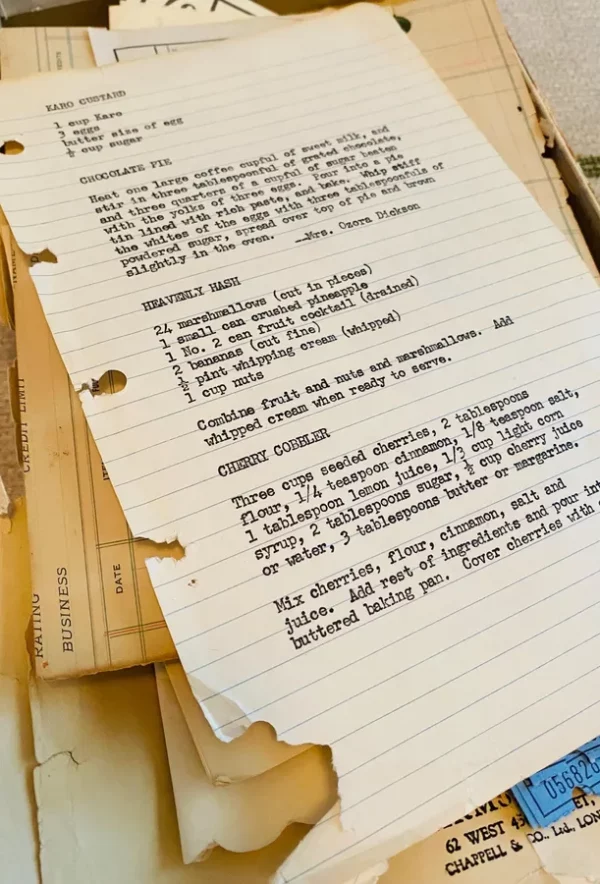 KARO CUSTARD
1 cup Karo
3 eggs
butter size of egg
½ cup sugar
CHOCOLATE PIE
Heat one large coffee cupful of sweet milk, and
stir in three tablespoonful of grated chocolate,
and three quarters of a cupful of sugar beaten
with the yolks of three eggs. Pour into a pie
tin lined with rich paste, and bake. Whip stiff
the whites of the eggs with three tablespoonfuls of
powdered sugar, spread over top of pie and brown
slightly in the oven. --Mrs. Ozora Dickson
HEAVENLY HASH
24 marshmallows (cut in pieces)
1 small can crushed pineapple
1 No. 2 can fruit cocktail (drained)
2 bananas (cut fine)
½ pint whipping cream (whipped)
1 cup nuts
Combine fruit and nuts and marshmallows. Add
whipped cream when ready to serve.
CHERRY COBBLER
Three cups seeded cherries, 2 tablespoons
flour, 1/4 teaspoon cinnamon, 1/8 teaspoon salt,
1 tablespoon lemon juice, 1/3 cup light corn
syrup, 2 tablespoons sugar, ½ cup cherry juice
or water, 3 tablespoons butter or margarine.
Mix cherries, flour, cinnamon, salt and
juice. Add rest of ingredients and pour int
buttered baking pan. Cover cherries with
CREDIT LIMIT
RATING
BUSINESS
DATE
62 WEST 45
CHAPPELL & CO., Ltd., LON